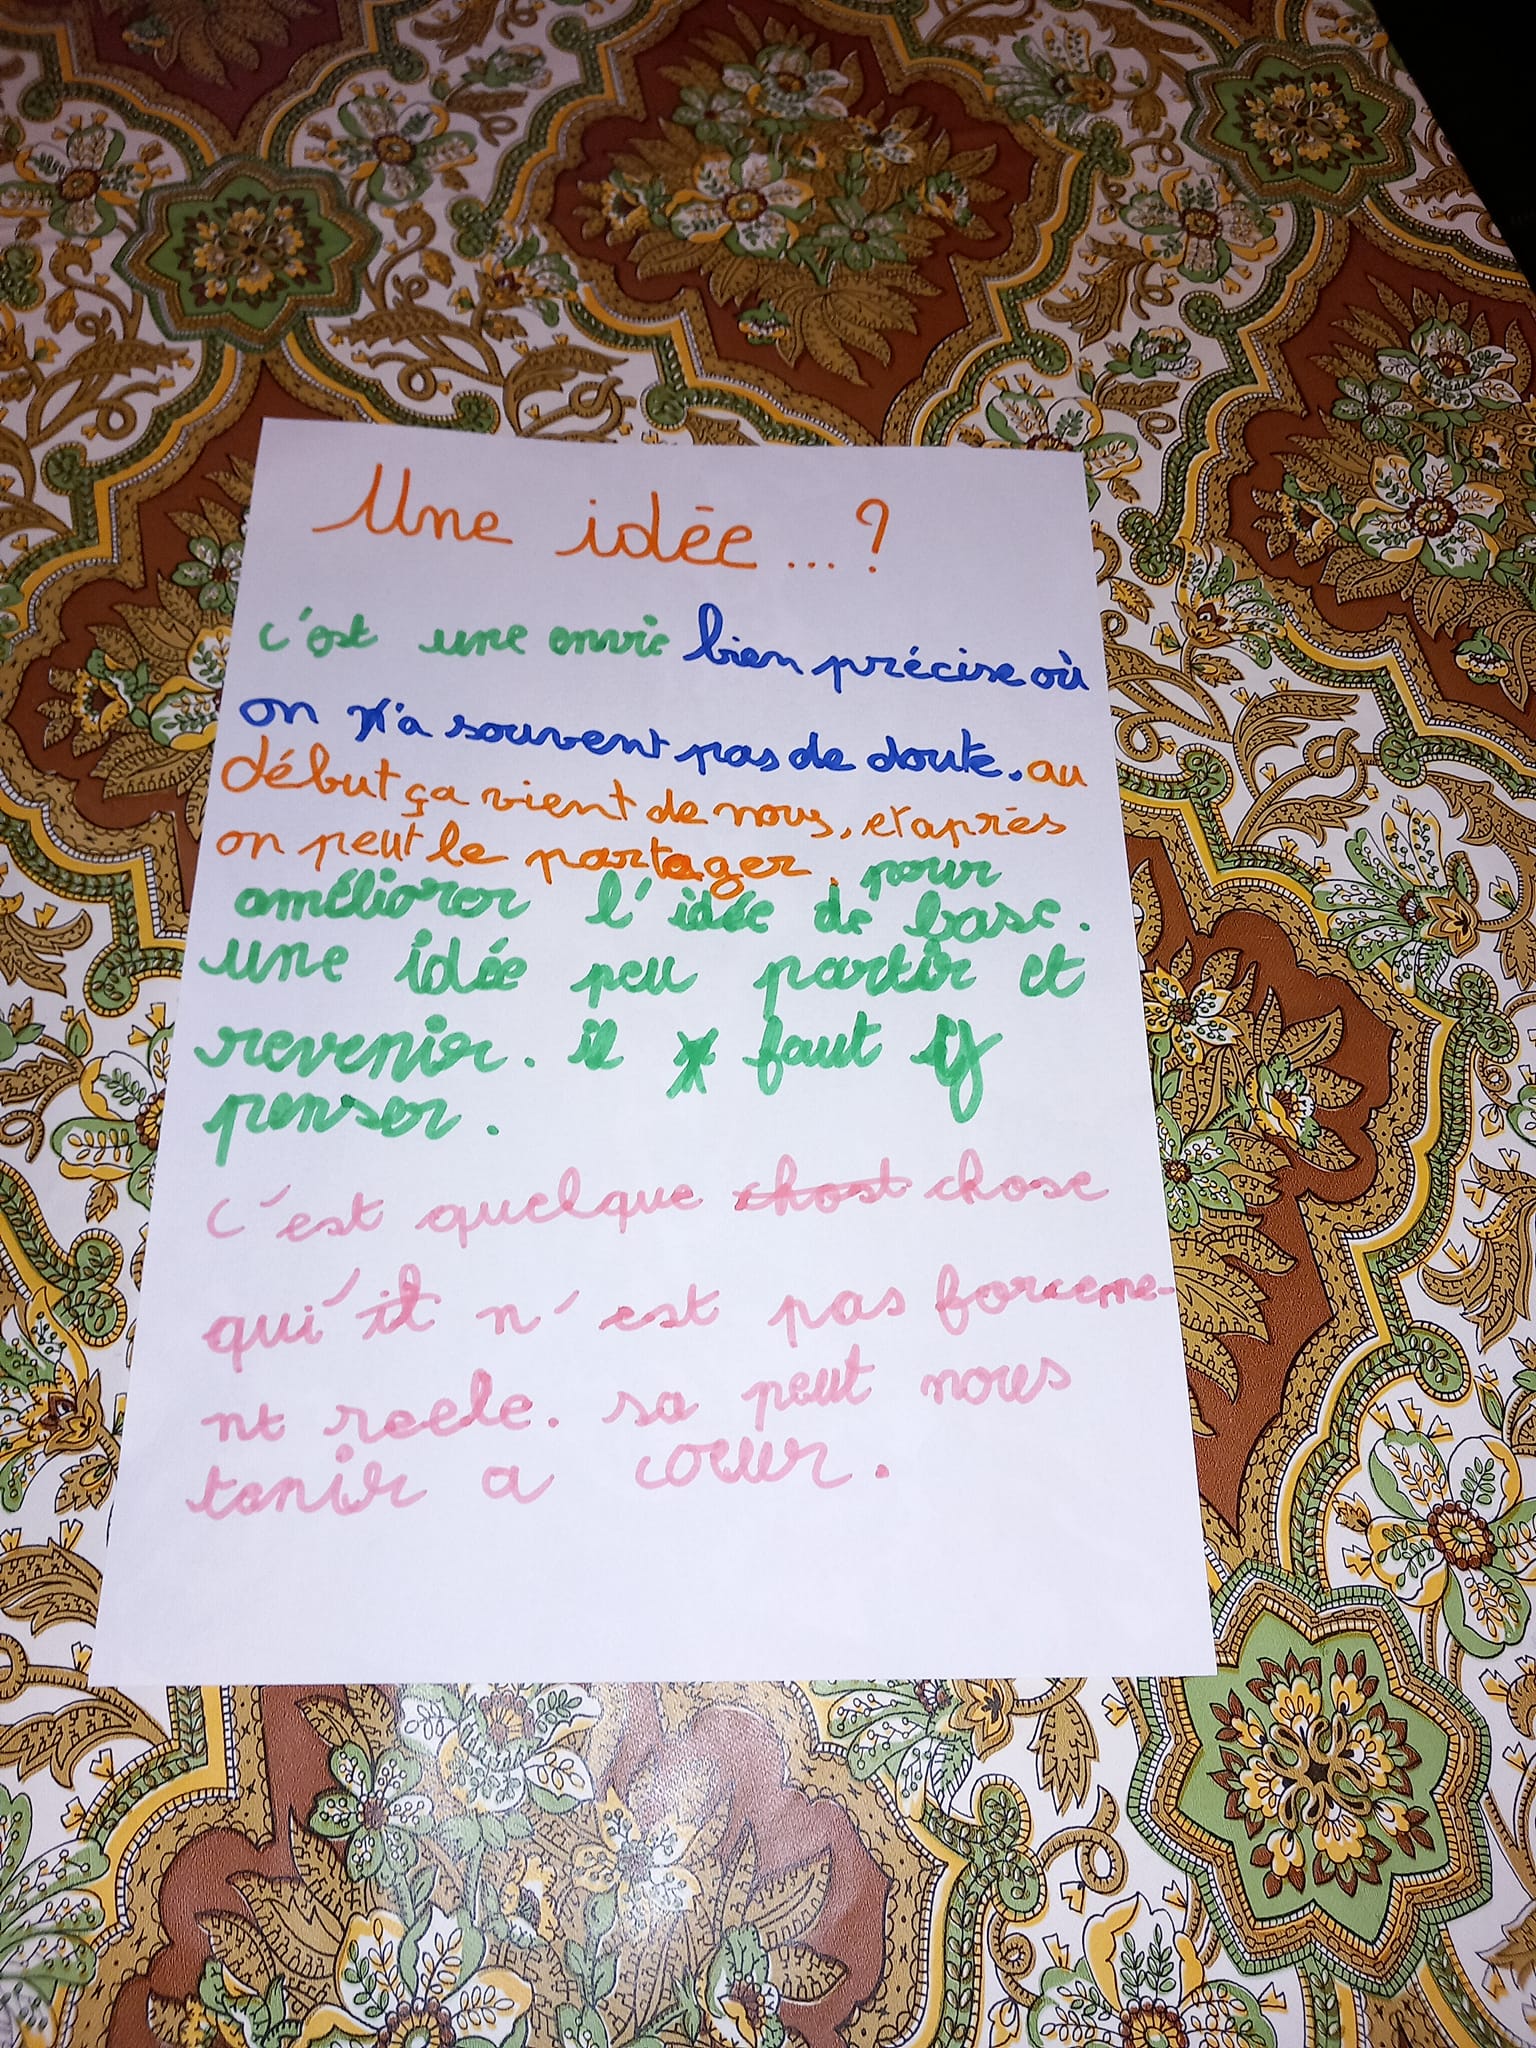 Une idée...?
c'est une envie bien précise où
on n'a souvent pas de doute. au
début ça vient de nous, et après
on peut le partager. pour
améliorer l'idée de base.
une idée peu partir et
revenir. il faut y
penser.
c'est quelque chost chose
qui il n'est pas forceme-
nt reele. sa peut nous
tenir a coeur.